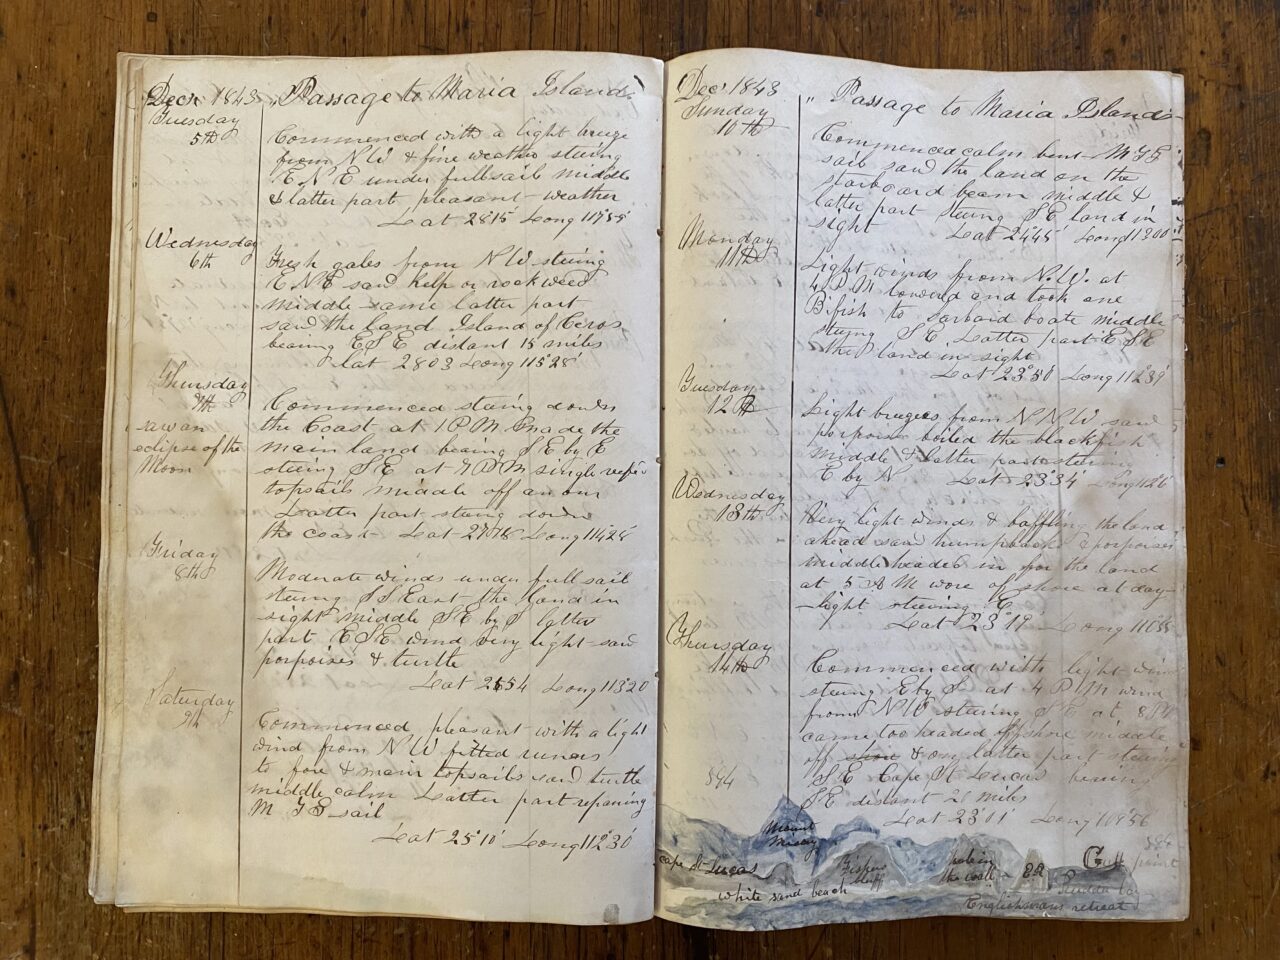 Decr 1843 "Passage to Maria Islands
Tuesday
5th
Commenced with a light breeze
from NW & fine weather steering
ENE under full sail middle
& latter part pleasant weather
Lat 28°15' Long 117°55'
Wednesday
6th
Fresh gales from NW steering
ENE saw kelp or rock weed
middle same latter part
saw the land Island of Ceros
bearing ESE distant 15 miles
Lat 28 03 Long 115°28'
Thursday
7th
saw an
eclipse of the
Moon
Commenced steering down
the Coast at 1 PM made the
main land bearing SE by E
steering SE at 7 PM single reefd
topsails middle off an on
Latter part steering down
the coast Lat 27°18' Long 114°28'
Friday
8th
Moderate winds under full sail
steering SSEast the land in
sight middle SE by S latter
part ESE wind very light saw
porpoises & turtle
Lat 26 54 Long 113°20
Saturday
9th
Commenced pleasant with a light
wind from NW fitted runers
to fore & main topsails saw turtle
middle calm Latter part repairing
M T G sail
Lat 25°10' Long 112°30'
Decr 1843 " Passage to Maria Islands
Sunday
10th
Commenced calm bent M T G
sail saw the land on the
starboard beam middle &
latter part steering SE land in
sight Lat 24°45' Long 113 00
Monday
11th
Light winds from N.W. at
4 PM lowered and took one
B fish to larboard boate middle
steering SE Latter part ESE
the land in sight
Lat 23°50' Long 112°39'
Tuesday
12th
Light breezes from NNW saw
porpoises boiled the blackfish
middle & latter part steering
E by N Lat 23°34' Long 112 6
Wednesday
13th
Very light winds & baffling the land
ahead saw humpbacks & porpoises
middle headed in for the land
at 5 AM wore of shore at day-
light steering E
Lat 23°19' Long 110
Thursday
14th
Commenced with light wind
steering E by S at 4 PM wind
from NW steering SE at 8 PM
came too headed offshore middle
off shore & on latter part steering
SE Cape St Lucas bearing
SE distant 20 miles
Lat 23°01' Long 109°56
894
Mount
Misery
Cape St Lucas
white sand beach
Bishop
bluff
hole in
the wall
Gull point
Englishmans retreat